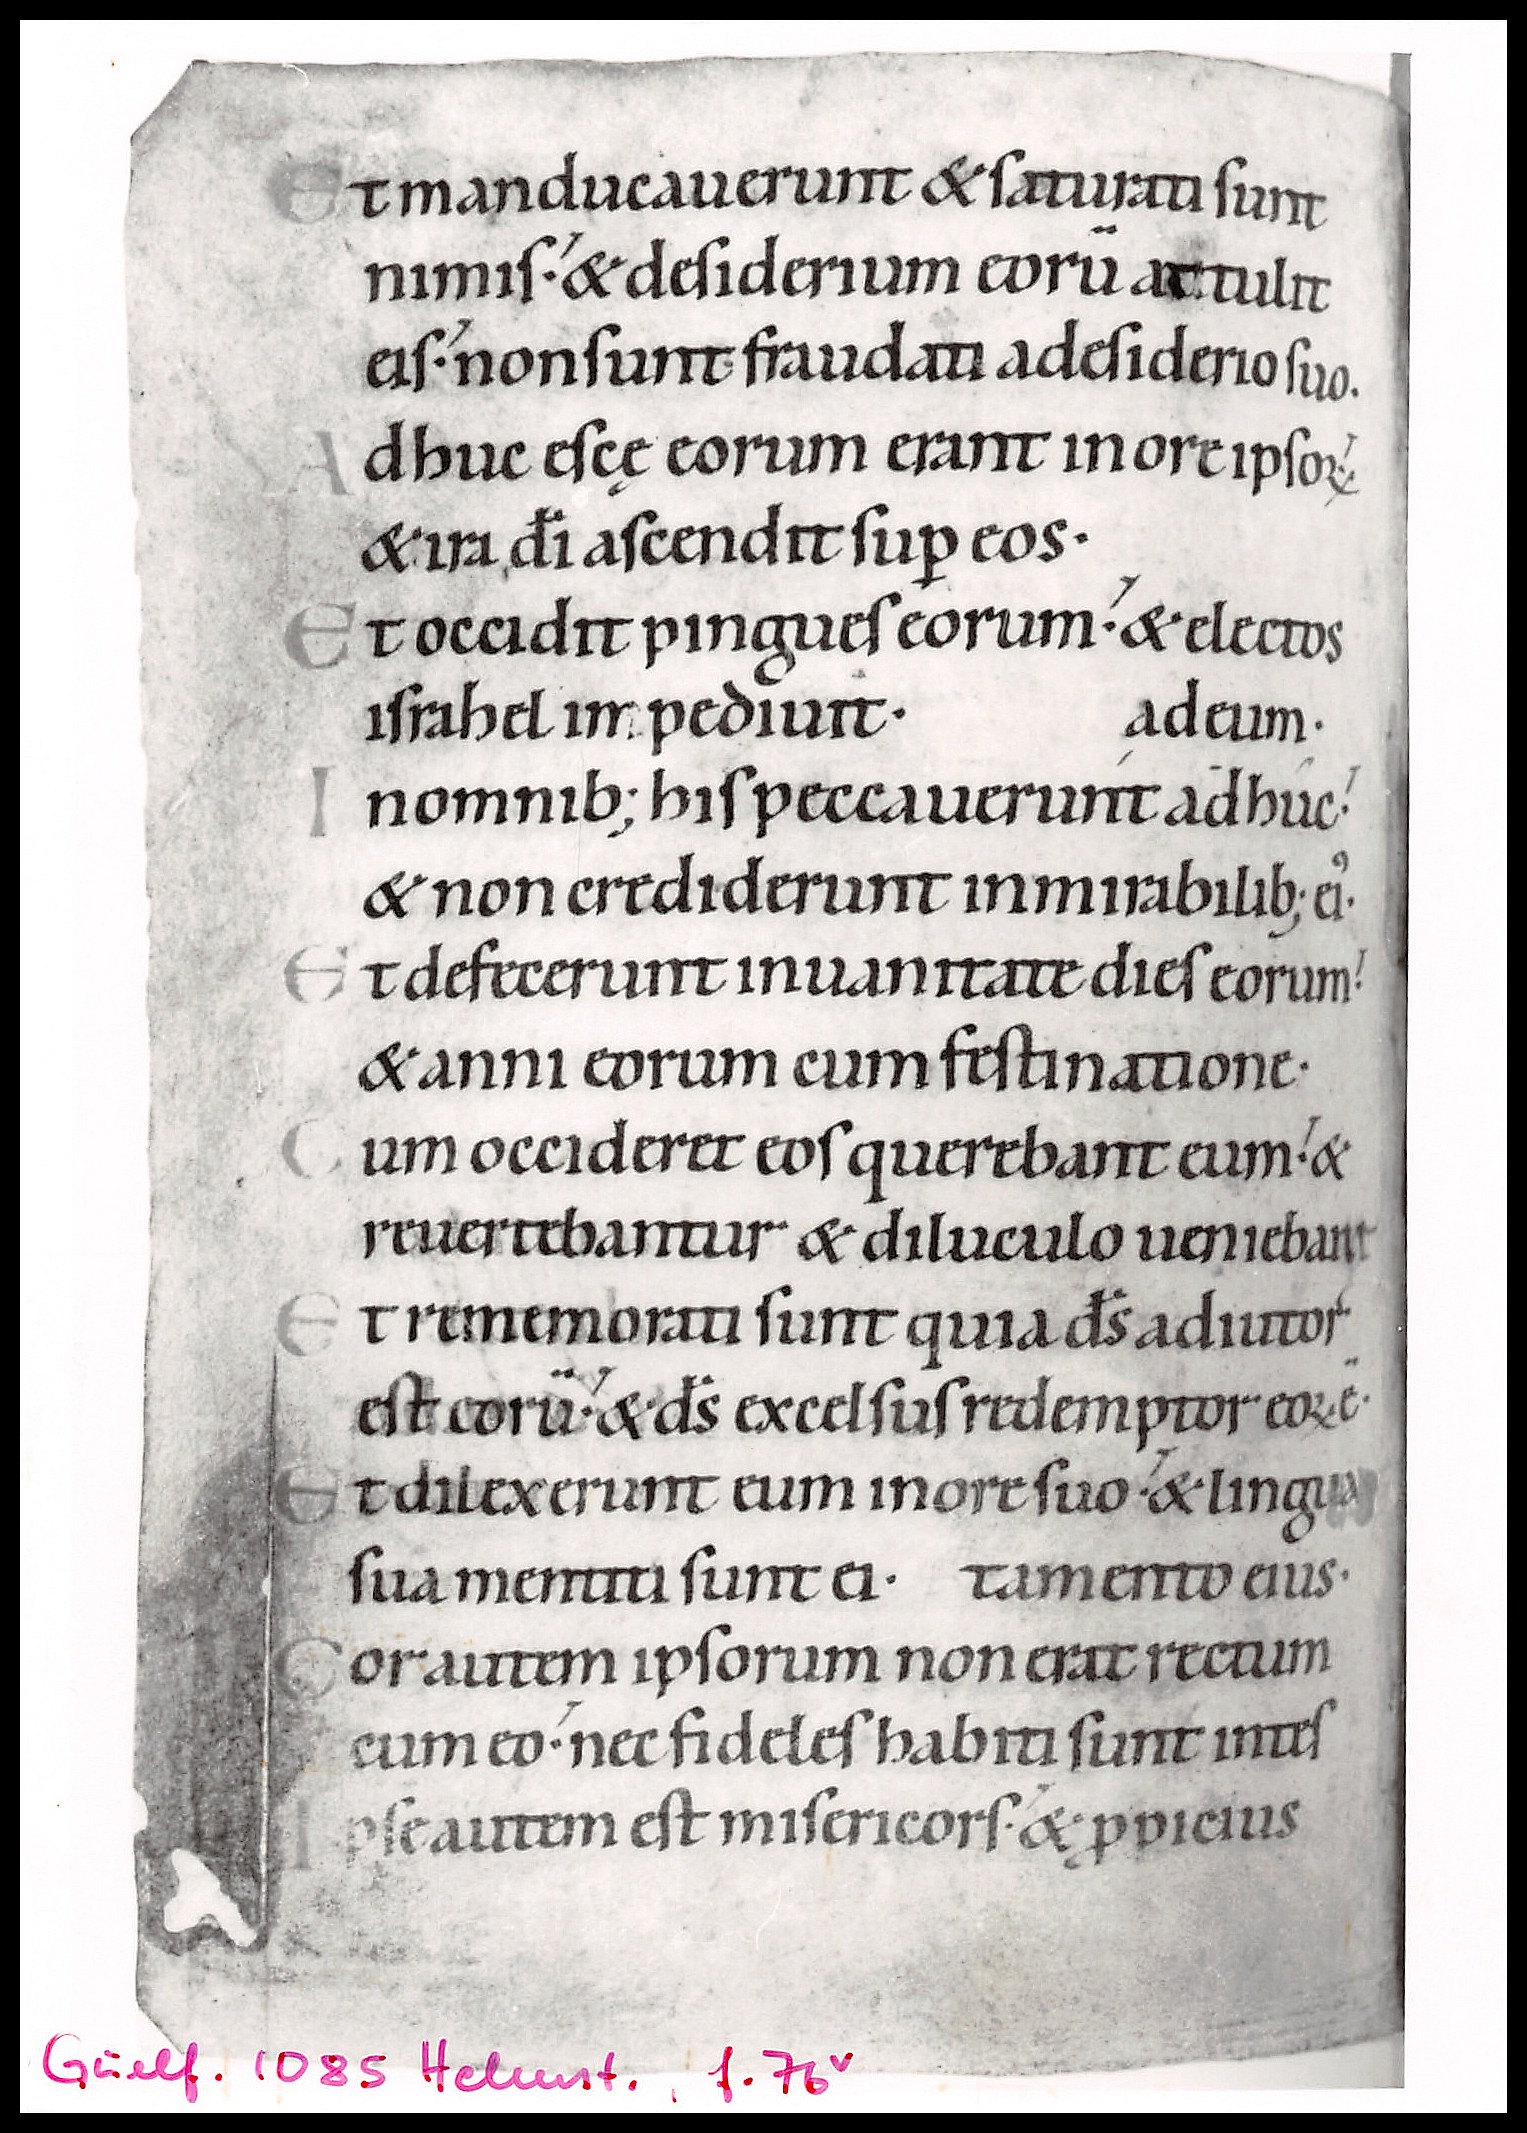 Et manducauerunt & saturati sunt
nimis·& desiderium eorū attulit
eis·non sunt fraudati adesiderio suo.
Adhuc escę eorum erant in ore ipsoꝝ·
& ira d̄i ascendit sup̱ eos·
Et occidit pingues eorum·& electos
israhel impediuit· ad eum·
In omnib; his peccauerunt adhuc·
& non crediderunt in mirabilib; ei᾿·
Et defecerunt in uanitate dies eorum·
& anni eorum cum festinatione·
Cum occideret eos querebant eum·&
reuertebantur & diluculo ueniebant
Et rememorati sunt quia d̄s adiutor
est eorū·& d̄s excelsus redemptor eoꝝ ē·
Et dilexerunt eum in ore suo·& lingua
sua mentiti sunt ei· tamento eius·
Cor autem ipsorum non erat rectum
cum eo·nec fideles habiti sunt in tes
Ipse autem est misericors·& ꝓpicius
Guelf. 1085 Helmst., f. 76v